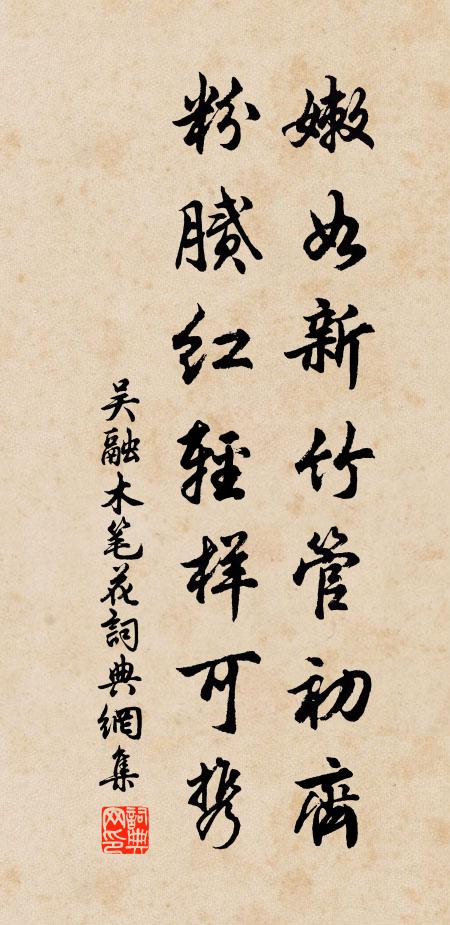 嫩如新竹管初齊
粉膩红輕样可携
吴融木笔花詞典網集
詞典网印